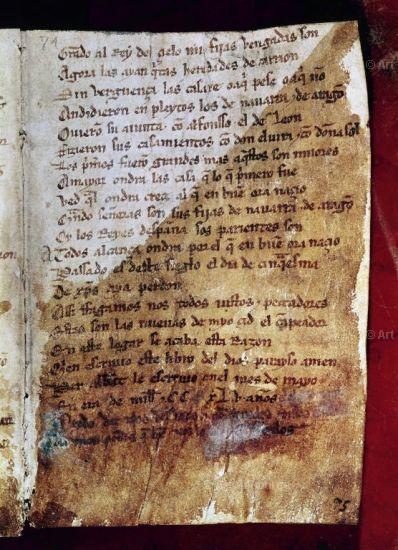 Grado al Rey del çielo mis fijas vengadas son
Agora las ayan q̃tas heredades de carrion
Sin verguença las casare o aq̃ pese o aq̃ nõ
Andidieron en pleytos los de nauarra e de aragõ
Ouieron su aiunta cõ alfonsso el de Leon
Fizieron sus casamientos cõ don eluira e cõ doña sol
Los p̃meros fuerõ grandes mas aq̃stos son miiores
A mayor ondra las casa q̃ lo q̃ p̃mero fue
Ved q̃l ondra creçe al q̃ en buẽ ora naçio
Q̃ndo señoras son sus fijas de nauarra e de aragõ
Oy los Reyes despaña sos parientes son
A todos alcança ondra por el q̃ en buẽ ora naçio
Passado es deste sieglo el dia de cinq̃esma
De xp̃s aya perdon
Assi ffagamos nos todos iustos e peccadores
Estas son las nueuas de myo çid el campeador
En este logar se acaba esta Razon
Quien escriuio este libro del dios parayso amen
Per abbat le escriuio enel mes de mayo
En era de mill e .CC xLv años
75
© Art
© Art